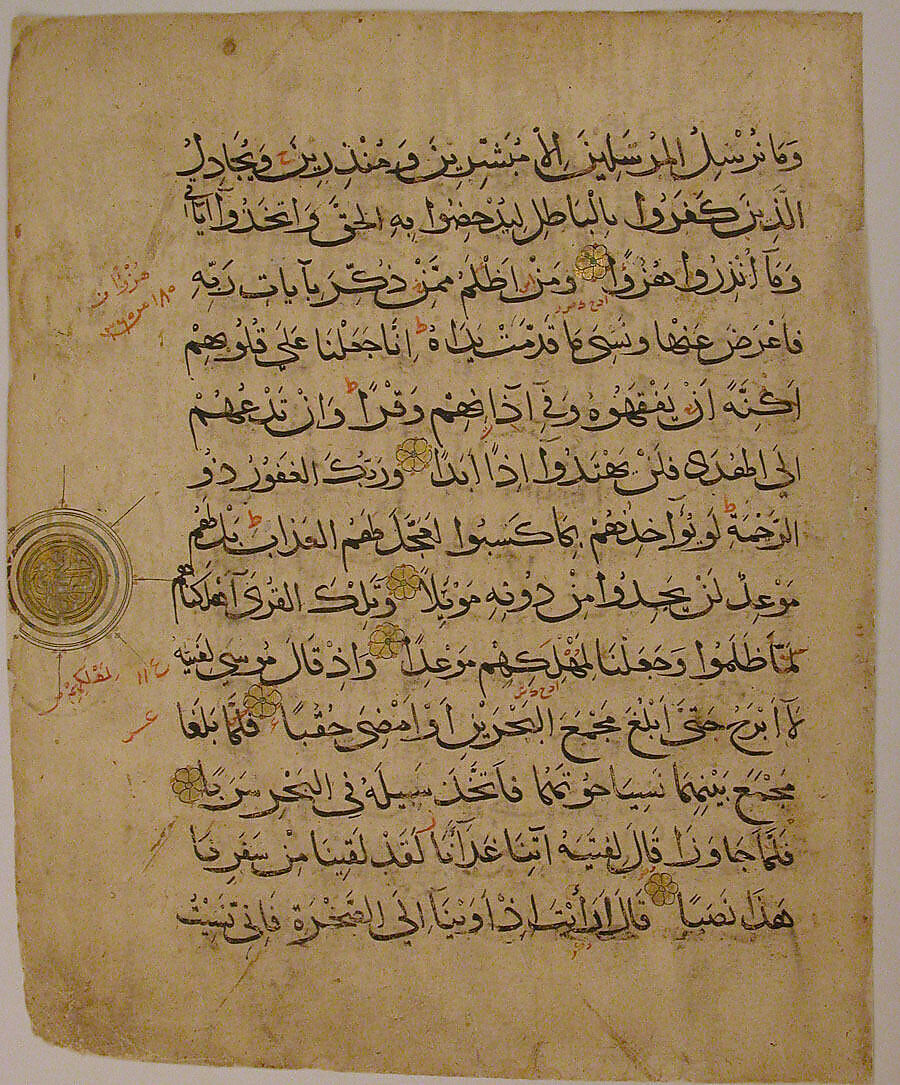 وَمَا نُرْسِلُ الْمُرْسَلِينَ اِلَّا مُبَشِّرِينَ وَمُنْذِرِينَ وَيُجَادِلُ
الَّذِينَ كَفَرُوا بِالْبَاطِلِ لِيُدْحِضُوا بِهِ الْحَقَّ وَاتَّخَذُوا آيَاتِى
وَمَآ اُنْذِرُوا هُزُوًا وَمَنْ اَظْلَمُ مِمَّنْ ذُكِّرَ بِآيَاتِ رَبِّهِ
فَاَعْرَضَ عَنْهَا وَنَسِىَ مَا قَدَّمَتْ يَدَاهُ ط اِنَّا جَعَلْنَا عَلَى قُلُوبِهِمْ
اَكِنَّةً اَنْ يَفْقَهُوهُ وَفِىٓ آذَانِهِمْ وَقْرًا ط وَاِنْ تَدْعُهُمْ
اِلَى الْهُدَى فَلَنْ يَهْتَدُوآ اِذًا اَبَدًا وَرَبُّكَ الْغَفُورُ ذُو
الرَّحْمَةِ ط لَوْ يُؤَاخِذُهُمْ بِمَا كَسَبُوا لَعَجَّلَ لَهُمُ الْعَذَابَ ط بَلْ لَهُمْ
مَوْعِدٌ لَنْ يَجِدُوا مِنْ دُونِهِ مَوْئِلًا وَتِلْكَ الْقُرَىٓ اَهْلَكْنَاهُمْ
لَمَّا ظَلَمُوا وَجَعَلْنَا لِمَهْلِكِهِمْ مَوْعِدًا وَاِذْ قَالَ مُوسَى لِفَتٰيهُ
لَآ اَبْرَحُ حَتَّىٓ اَبْلُغَ مَجْمَعَ الْبَحْرَيْنِ اَوْ اَمْضِىَ حُقُبًا فَلَمَّا بَلَغَا
مَجْمَعَ بَيْنِهِمَا نَسِيَا حُوتَهُمَا فَاتَّخَذَ سَبِيلَهُ فِى الْبَحْرِ سَرَبًا
فَلَمَّا جَاوَزَا قَالَ لِفَتٰيهُ آتِنَا غَدَآءَنَا لَقَدْ لَقِينَا مِنْ سَفَرِنَا
هَذَا نَصَبًا قَالَ اَرَاَيْتَ اِذْ اَوَيْنَآ اِلَى الصَّخْرَةِ فَاِنِّى نَسِيتُ